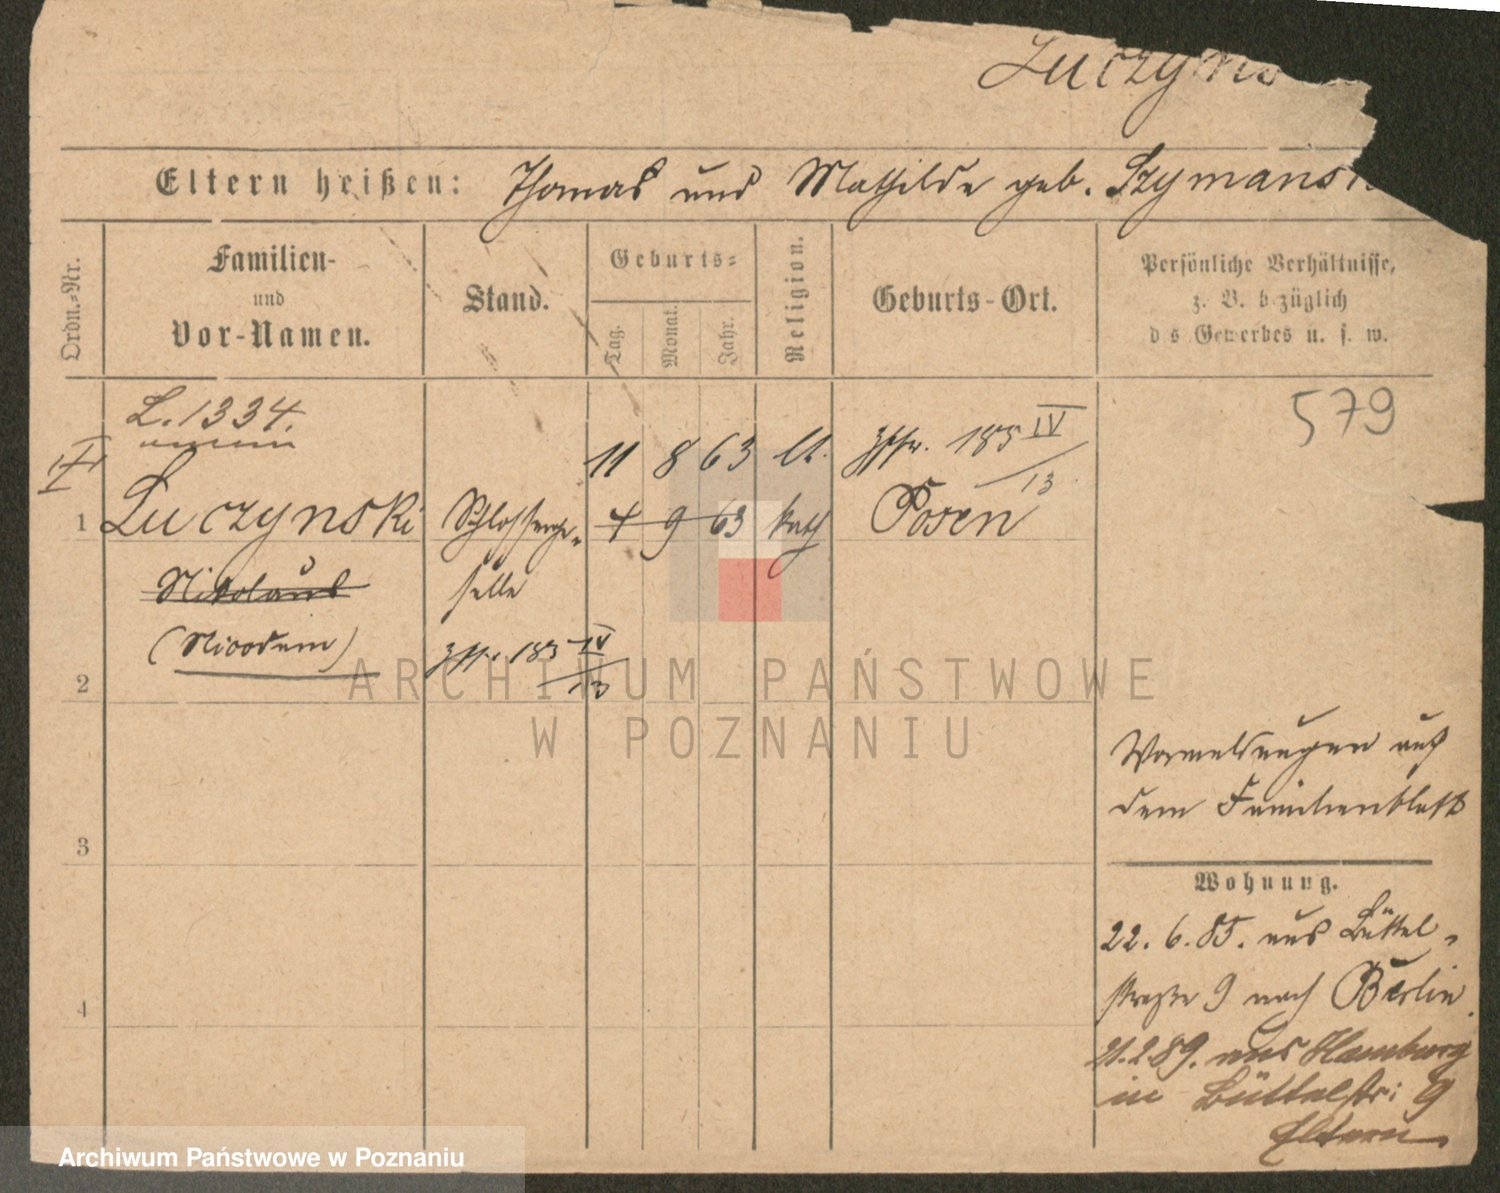 Luczyns
Eltern heißen: Thomas und Mathilde geb. Szymansk
Ordn.-Nr.
Familien-
und
Vor-Namen.
Stand.
Geburts-
Tag.
Monat.
Jahr.
Religion.
Geburts-Ort.
Persönliche Verhältnisse,
z. B. bezüglich
des Gewerbes u. s. w.
L. 1334.
579
11 8 63 lt. 185 IV
13
1 Luczynski Schlosserge- 4 9 63 kath Posen
Nikolaus selle
(Nicodem) 185 IV
13
2
3
4
Vormeldungen auf
dem Familienblatt
Wohnung.
22. 6. 85. aus Büttel-
straße 9 nach Berlin.
21.2.89. aus Hamburg
in Büttelstr: 9
Eltern.
ARCHIWUM PAŃSTWOWE
W POZNANIU
Archiwum Państwowe w Poznaniu